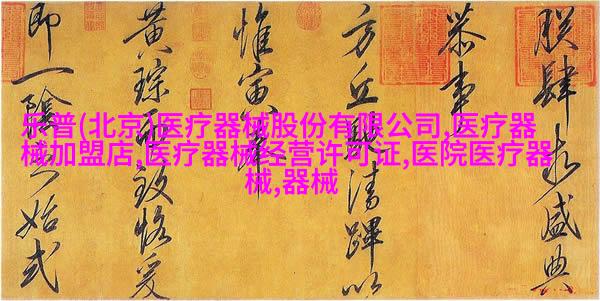 乐普(北京)医疗器械股份有限公司,医疗器
械加盟店,医疗器械经营许可证,医院医疗器
械,器械
朕肆求盛典
恭事
方丘清蹕以
惟寅
黄琮致恪爰
即一陰之始式